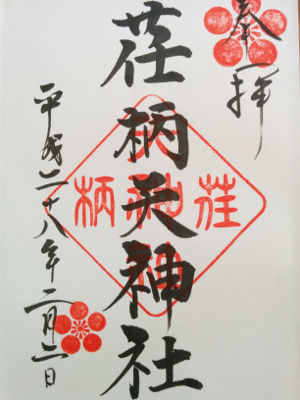 奉拝
荏柄天神社
平成二十八年二月二日